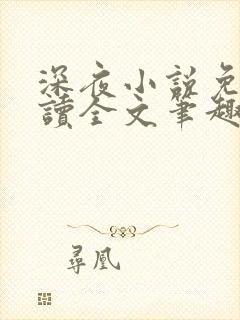 深夜小說免
讀全文筆趣
尋凰